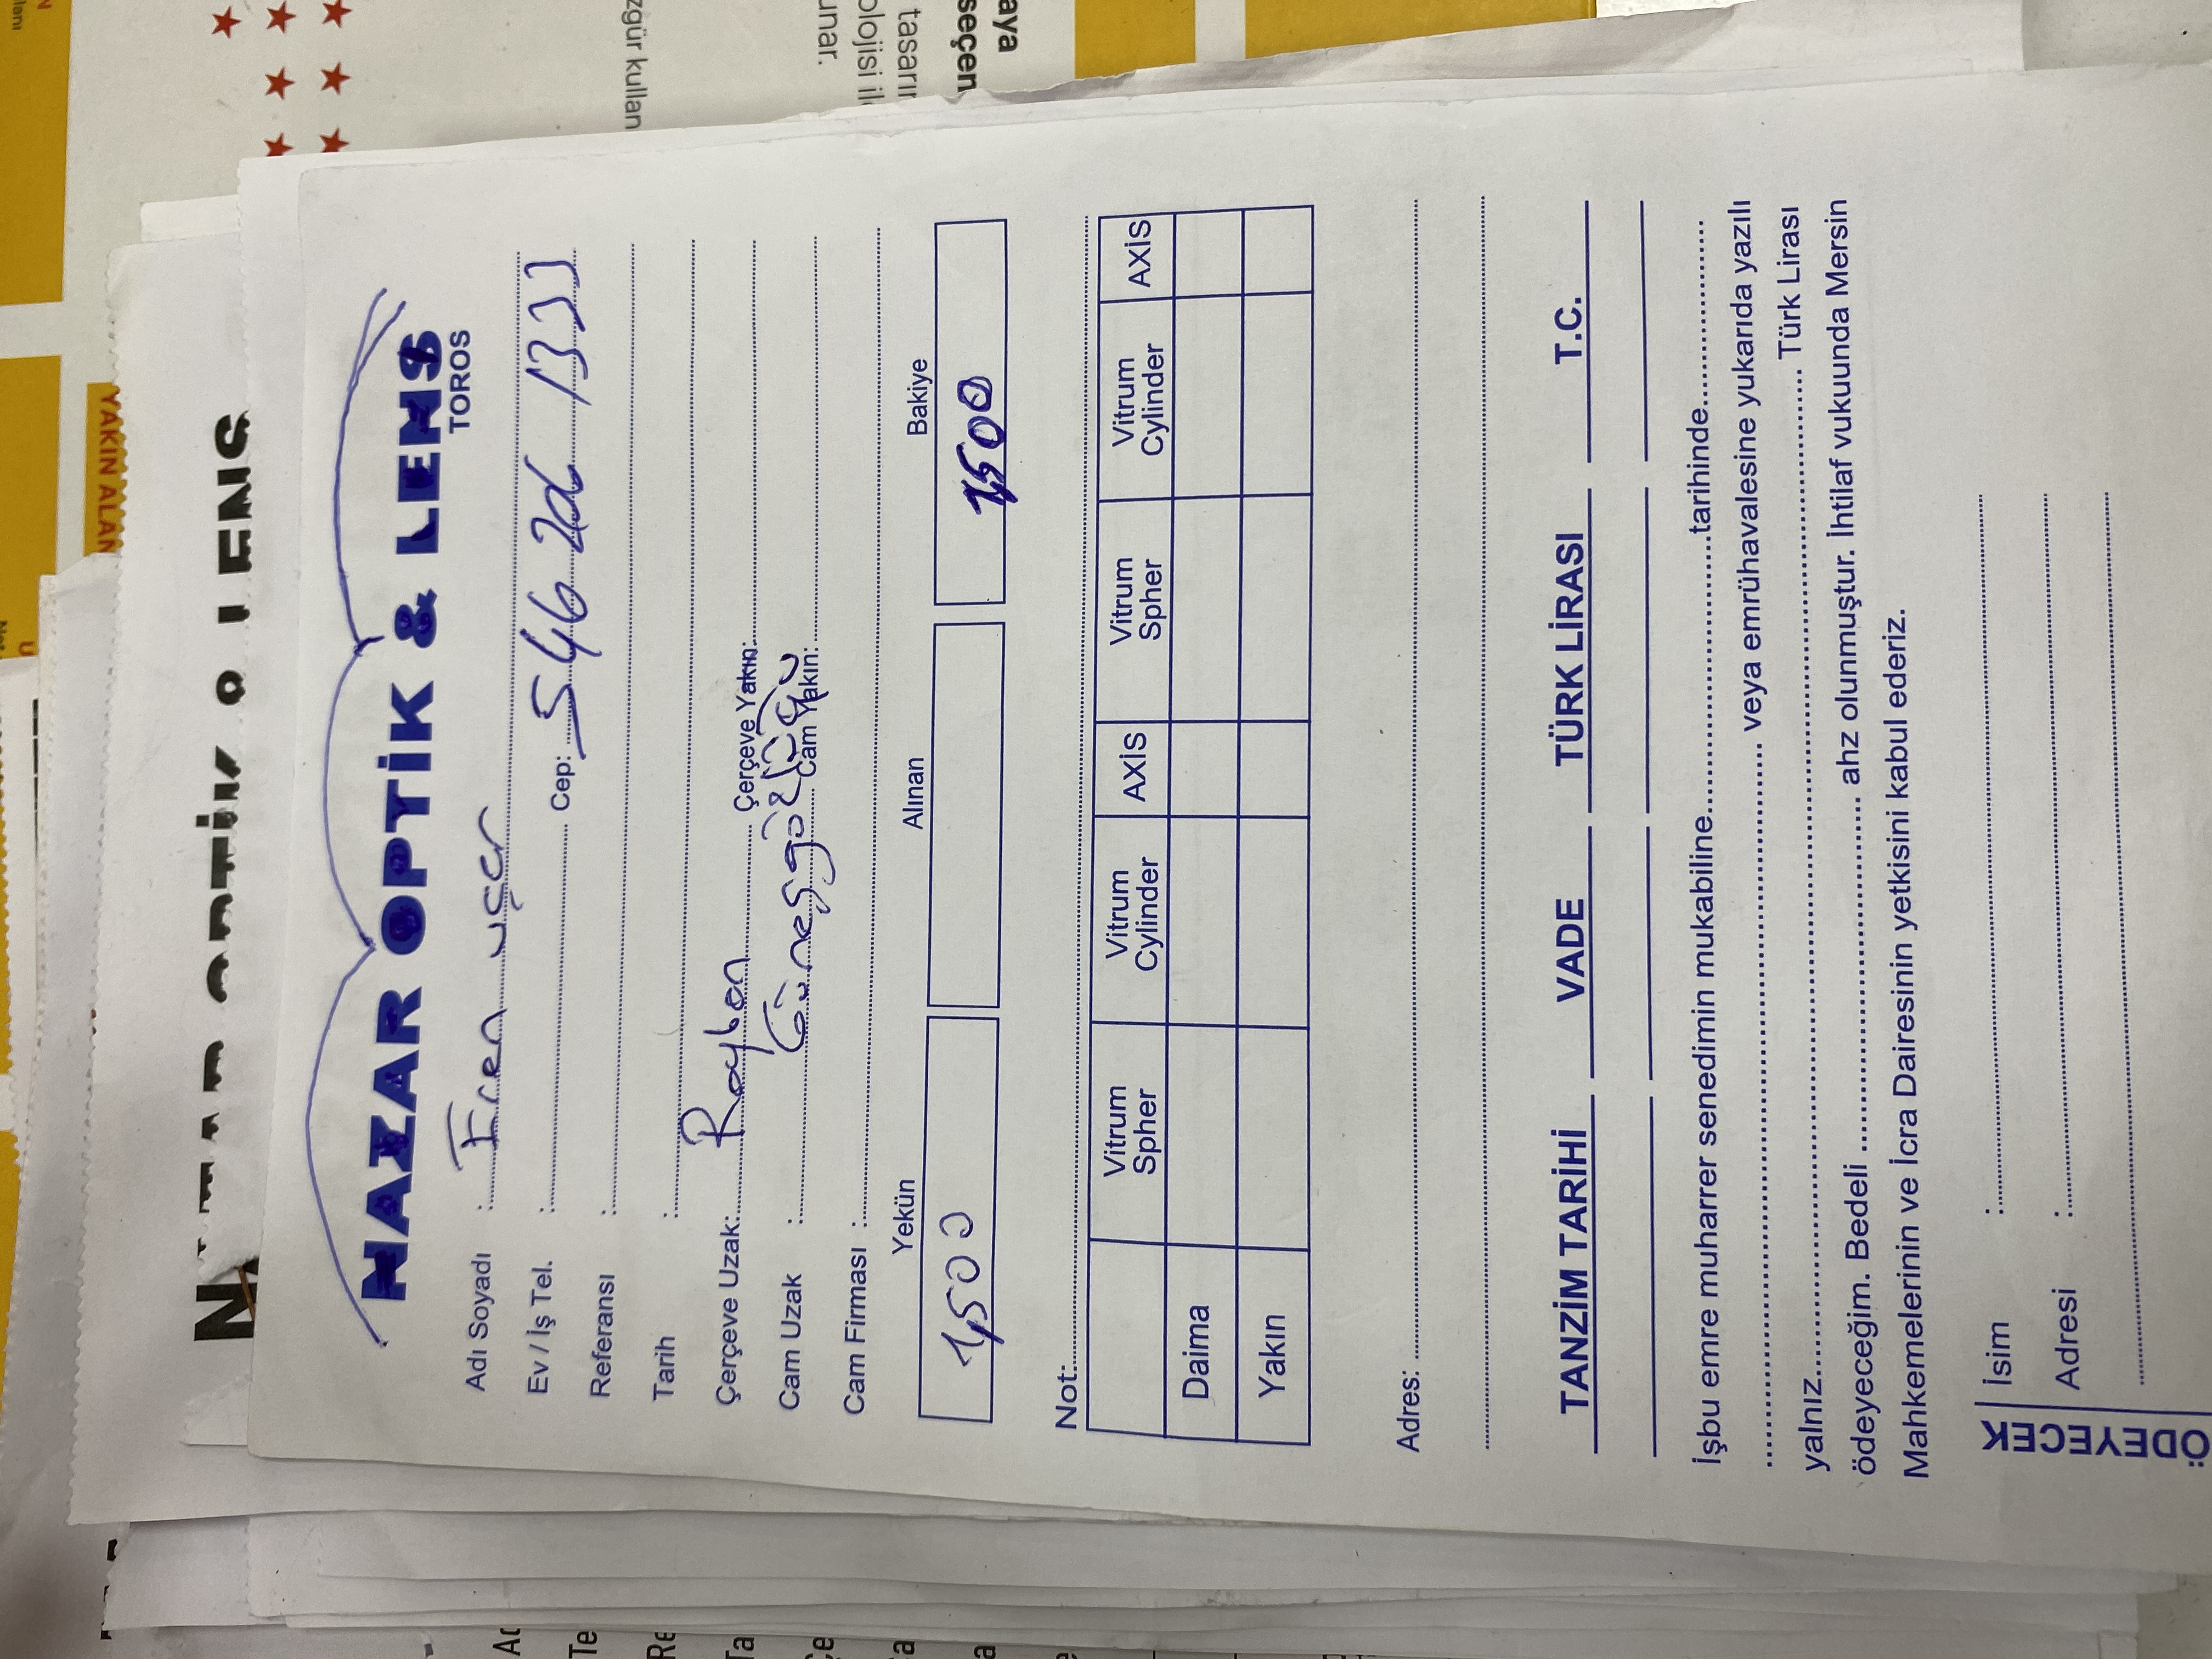 NAZAR OPTİK & LENS
NAZAR OPTİK & LENS
TOROS
Adı Soyadı : Eren uçar
Ev / İş Tel. : Cep: 546 206 1333
Referansı :
Tarih :
Çerçeve Uzak: Rayban Çerçeve Yakın:
Cam Uzak : Güneş gözlüğü Cam Yakın:
Cam Firması :
Yekün Alınan Bakiye
1,500 1,500
Not:
Vitrum Spher Vitrum Cylinder AXİS Vitrum Spher Vitrum Cylinder AXİS
Daima
Yakın
Adres:
TANZİM TARİHİ VADE TÜRK LİRASI T.C.
İşbu emre muharrer senedimin mukabiline............................tarihinde...................
.......................................................................... veya emrühavalesine yukarıda yazılı
yalnız..................................................................................................... Türk Lirası
ödeyeceğim. Bedeli .................................... ahz olunmuştur. İhtilaf vukuunda Mersin
Mahkemelerinin ve İcra Dairesinin yetkisini kabul ederiz.
ÖDEYECEK
İsim :
Adresi :
YAKIN ALAN
özgür kullan
unar.
olojisi il
tasarı
seçen
aya